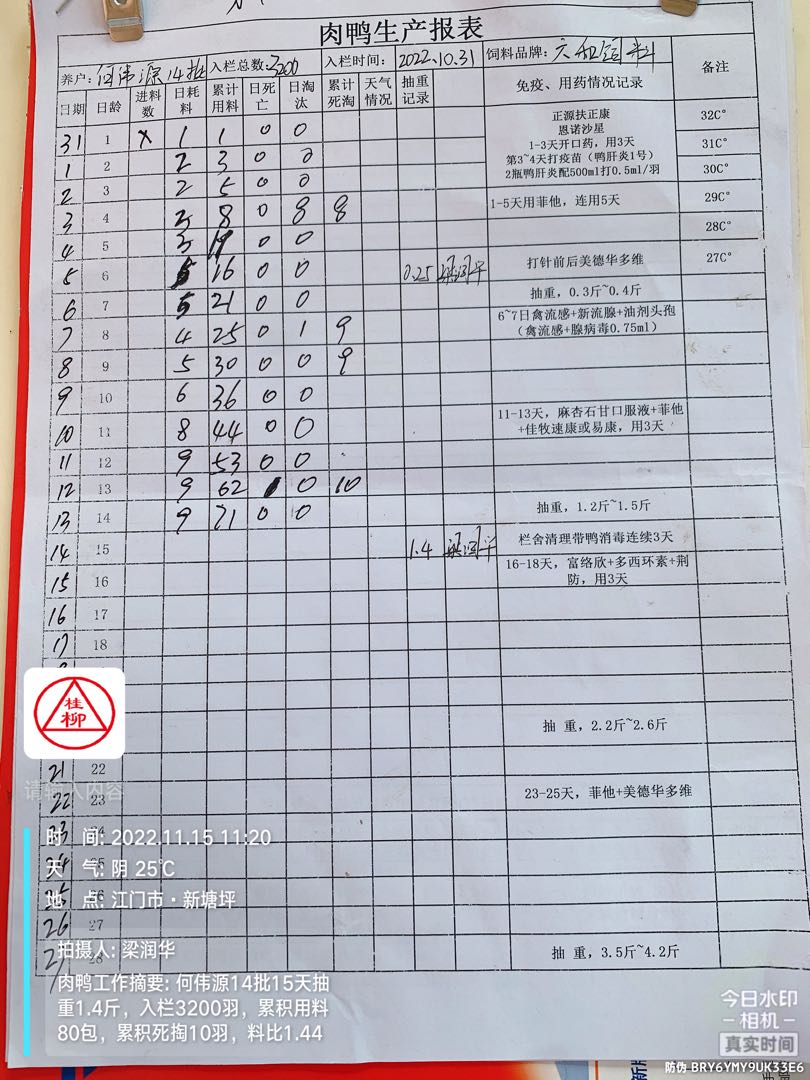 肉鸭生产报表
养户: 何伟源14批 入栏总数:3200 入栏时间: 2022.10.31 饲料品牌: 六和饲料 备注
日期 日龄 进料数 日耗料 累计用料 日死亡 日淘汰 累计死淘 天气情况 抽重记录 免疫、用药情况记录
31 1 X 1 1 0 0
正源扶正康 32C°
恩诺沙星
1-3天开口药，用3天 31C°
第3~4天打疫苗（鸭肝炎1号）
2瓶鸭肝炎配500ml打0.5ml/羽 30C°
1 2 2 3 0 0
2 3 2 5 0 0
3 4 3 8 0 8 8 1-5天用菲他，连用5天 29C°
4 5 3 11 0 0 28C°
5 6 5 16 0 0 0.25 梁润华 打针前后美德华多维 27C°
6 7 5 21 0 0 抽重，0.3斤~0.4斤
7 8 4 25 0 1 9 6~7日禽流感+新流腺+油剂头孢
（禽流感+腺病毒0.75ml）
8 9 5 30 0 0 9
9 10 6 36 0 0
10 11 8 44 0 0 11-13天，麻杏石甘口服液+菲他
+佳牧速康或易康，用3天
11 12 9 53 0 0
12 13 9 62 1 0 10
13 14 9 71 0 0 抽重，1.2斤~1.5斤
14 15 1.4 梁润华 栏舍清理带鸭消毒连续3天
15 16 16-18天，富络欣+多西环素+荆
防，用3天
16 17
17 18
桂
柳
抽 重，2.2斤~2.6斤
21 22
请输入内容
22 23 23-25天，菲他+美德华多维
23
24
25
26 27
27 28 抽 重，3.5斤~4.2斤
时 间: 2022.11.15 11:20
天 气: 阴 25℃
地 点: 江门市·新塘坪
拍摄人: 梁润华
肉鸭工作摘要: 何伟源14批15天抽
重1.4斤，入栏3200羽，累积用料
80包，累积死掏10羽，料比1.44
今日水印
相机
真实时间
防伪 BRY6YMY9UK33E6